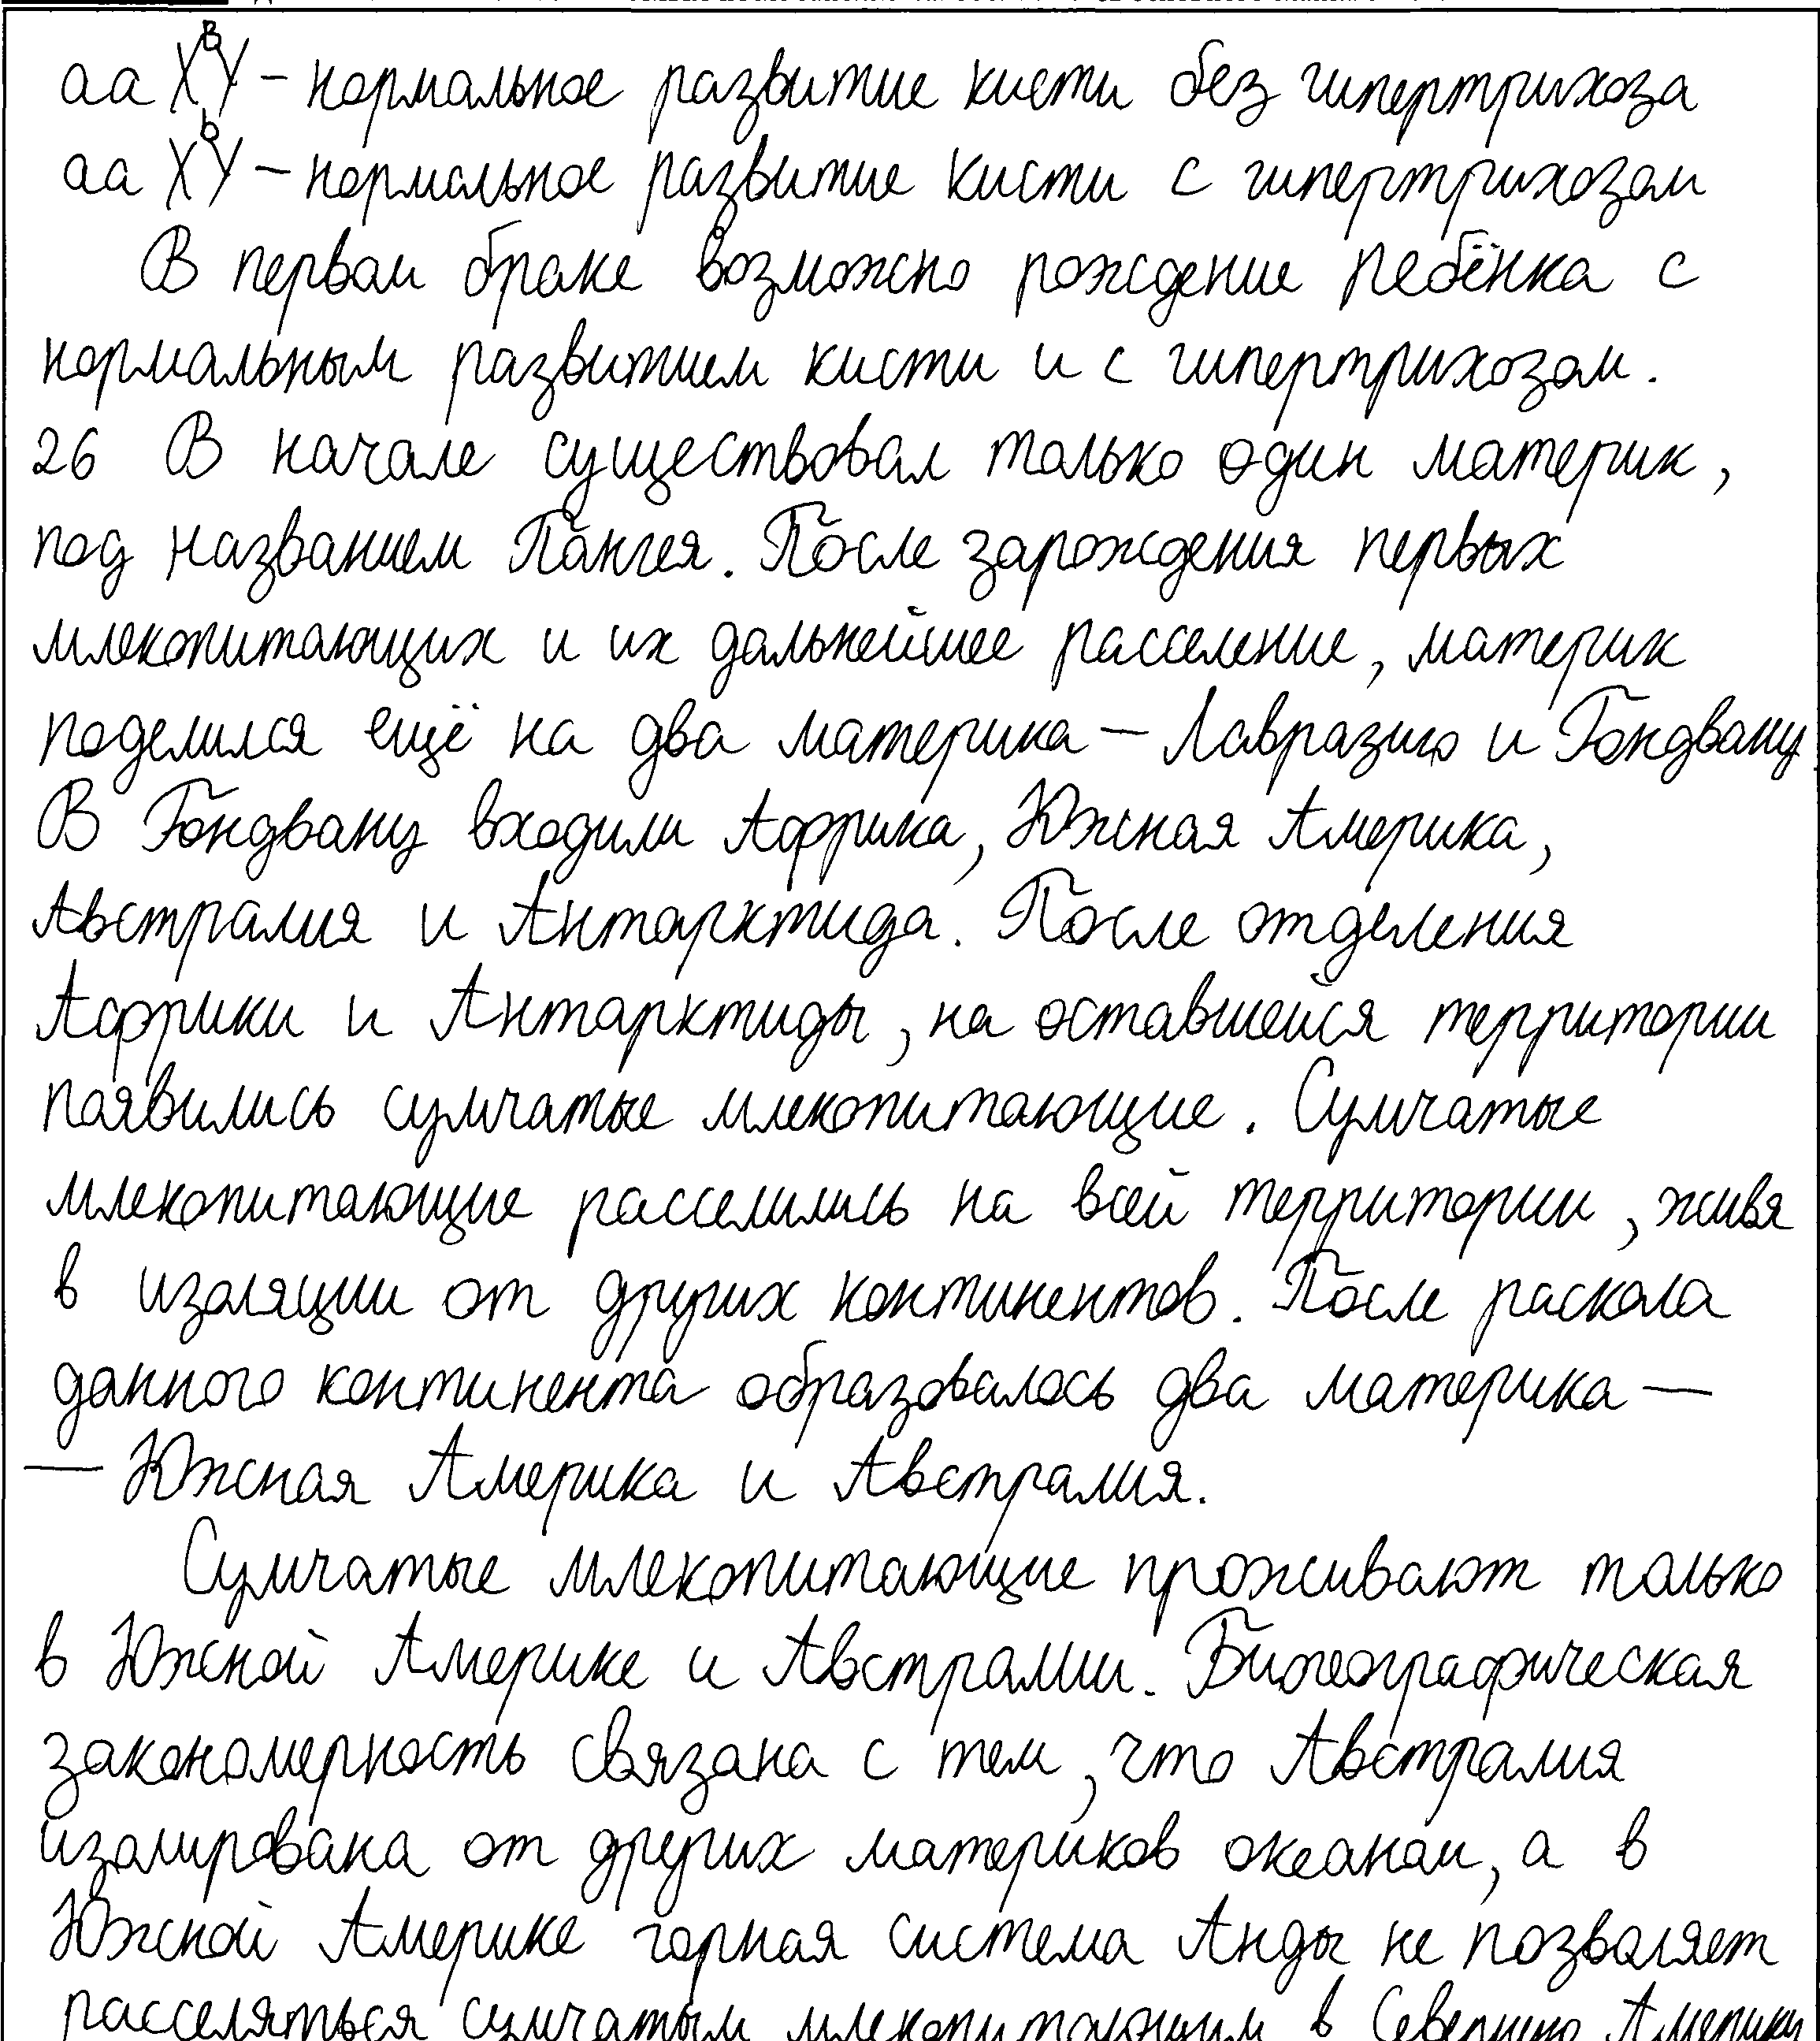 aa XᴮY – нормальное развитие кисти без гипертрихоза
aa XᵇY – нормальное развитие кисти с гипертрихозом
В первом браке возможно рождение ребёнка с
нормальным развитием кисти и с гипертрихозом.
26 В начале существовал только один материк,
под названием Пангея. После зарождения первых
млекопитающих и их дальнейшее расселение, материк
поделился ещё на два материка – Лавразию и Гондвану.
В Гондвану входили Африка, Южная Америка,
Австралия и Антарктида. После отделения
Африки и Антарктиды, на оставшейся территории
появились сумчатые млекопитающие. Сумчатые
млекопитающие расселились на всей территории, живя
в изоляции от других континентов. После раскола
данного континента образовалось два материка –
– Южная Америка и Австралия.
Сумчатые млекопитающие проживают только
в Южной Америке и Австралии. Биогеографическая
закономерность связана с тем, что Австралия
изолирована от других материков океаном, а в
Южной Америке горная система Анды не позволяет
расселяться сумчатым млекопитающим в Северную Америку